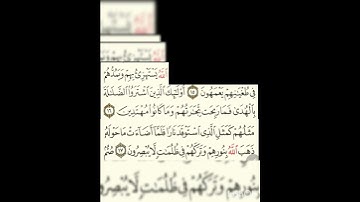 ٱللَّهُ يَسْتَهْزِئُ بِهِمْ وَيَمُدُّهُمْ
فِى طُغْيَٰنِهِمْ يَعْمَهُونَ ١٥ أُو۟لَٰٓئِكَ ٱلَّذِينَ ٱشْتَرَوُا۟ ٱلضَّلَٰلَةَ
بِٱلْهُدَىٰ فَمَا رَبِحَت تِّجَٰرَتُهُمْ وَمَا كَانُوا۟ مُهْتَدِينَ ١٦
مَثَلُهُمْ كَمَثَلِ ٱلَّذِى ٱسْتَوْقَدَ نَارًا فَلَمَّآ أَضَآءَتْ مَا حَوْلَهُۥ
ذَهَبَ ٱللَّهُ بِنُورِهِمْ وَتَرَكَهُمْ فِى ظُلُمَٰتٍ لَّا يُبْصِرُونَ ١٧ صُمٌّۢ
بِنُورِهِمْ وَتَرَكَهُمْ فِى ظُلُمَٰتٍ لَّا يُبْصِرُونَ